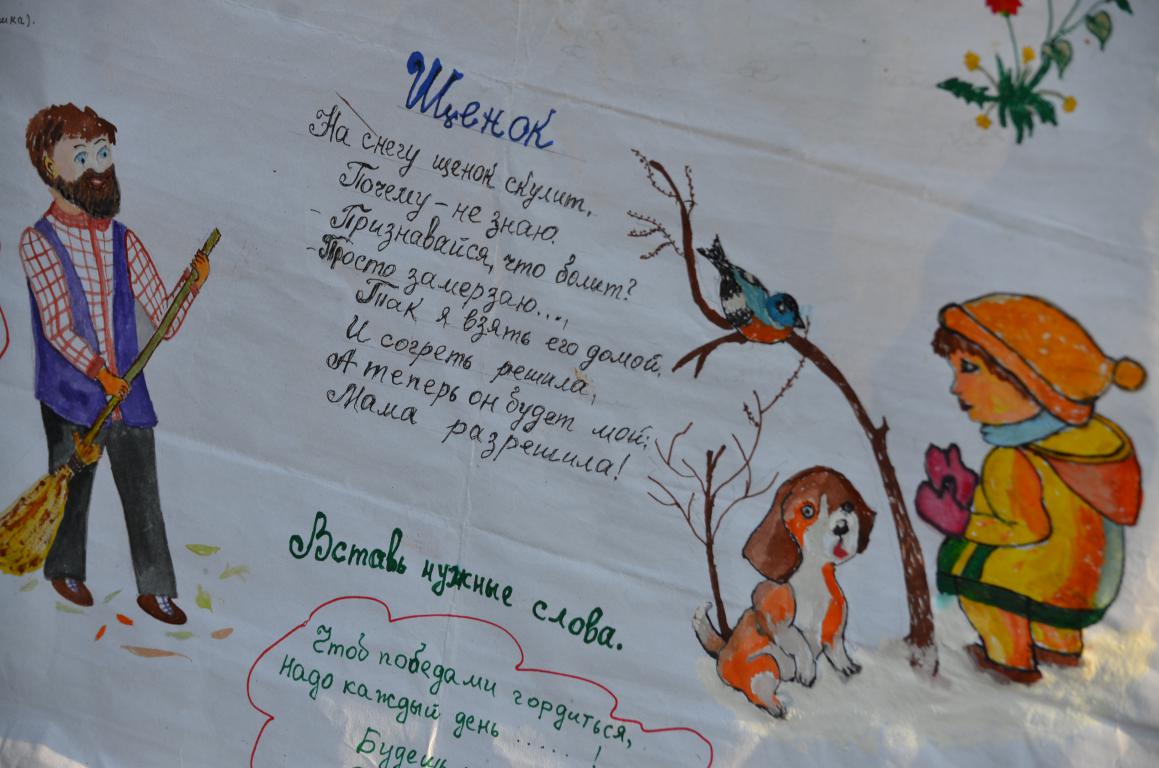 Щенок
На снегу щенок скулит,
Почему – не знаю.
- Признавайся, что болит?
- Просто замерзаю...,
Так я взять его домой,
И согреть решила,
А теперь он будет мой:
Мама разрешила!
Вставь нужные слова.
Чтоб победами гордиться,
надо каждый день ......!
Будешь